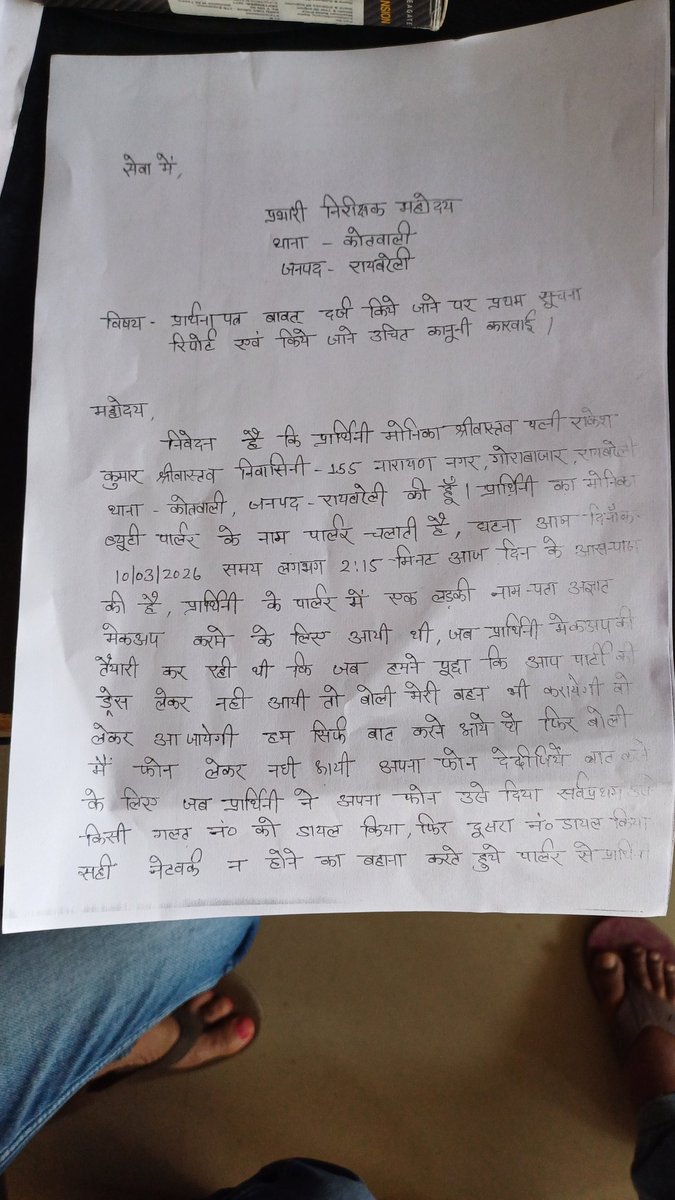 सेवा में,
प्रभारी निरीक्षक महोदय
थाना - कोतवाली
जनपद - रायबरेली
विषय - प्रार्थना पत्र बावत् दर्ज किये जाने पर प्रथम सूचना
रिपोर्ट एवं किये जाने उचित कानूनी कारवाई।
महोदय,
निवेदन है कि प्रार्थिनी मोनिका श्रीवास्तव पत्नी राकेश
कुमार श्रीवास्तव निवासिनी - 155 नारायण नगर, गोराबाजार, रायबरेली
थाना - कोतवाली, जनपद - रायबरेली की हूँ। प्रार्थिनी का मोनिका
ब्यूटी पार्लर के नाम पार्लर चलाती है, घटना आज दिनाँक-
10/03/2026 समय लगभग 2:15 मिनट आज दिन के आस-पास
की है, प्रार्थिनी के पार्लर में एक लड़की नाम-पता अज्ञात
मेकअप करमे के लिए आयी थी, जब प्रार्थिनी मेकअप की
तैयारी कर रही थी कि जब हमने पूछा कि आप पार्टी की
ड्रेस लेकर नही आयी तो बोली मेरी बहन भी करायेगी वो
लेकर आ जायेगी हम सिर्फ बात करने आये थे फिर बोली
मैं फोन लेकर नही आयी अपना फोन दे दीजिये बात करने
के लिए जब प्रार्थिनी ने अपना फोन उसे दिया सर्वप्रथम उसने
किसी गलत नं० को डायल किया, फिर दूसरा नं० डायल किया
सही नेटवर्क न होने का बहाना करते हुये पार्लर से प्रार्थिनी
SEAGATE